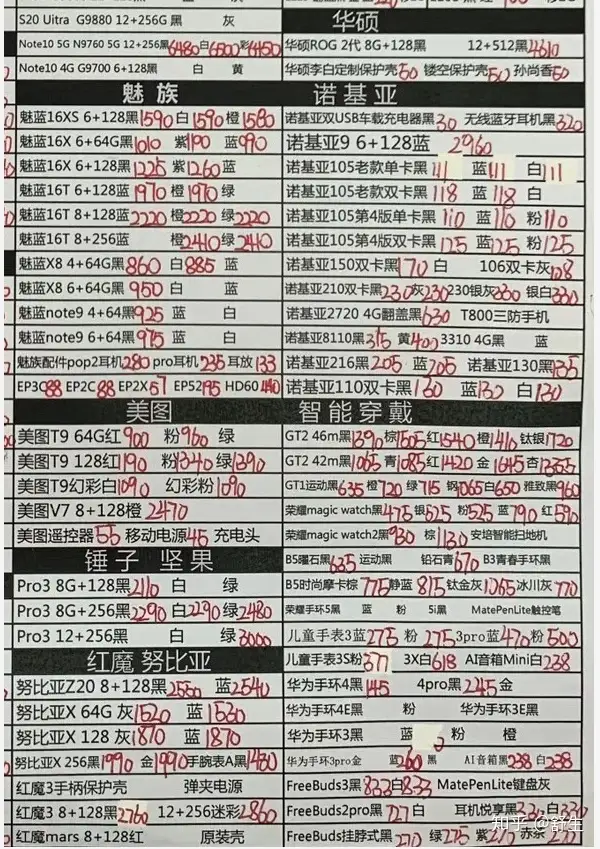 S20 Uitra G9880 12+256G 黑 灰
Note10 5G N9760 5G 12+256黑6480白6500彩6450
Note10 4G G9700 6+128黑 白 黄
魅 族
魅蓝16XS 6+128黑1590白1590橙1580
魅蓝16X 6+64G黑1010 紫1190 蓝990
魅蓝16X 6+128黑1225 紫1260蓝
魅蓝16T 6+128蓝1970橙1970绿
魅蓝16T 8+128蓝2220橙2220绿2220
魅蓝16T 8+256蓝 橙2410绿2410
魅蓝X8 4+64G黑860 白885 蓝
魅蓝X8 6+64G黑950 白 蓝
魅蓝note9 4+64黑925 白 蓝
魅蓝note9 6+64黑975 白 蓝
魅族配件pop2耳机280 pro耳机235耳放133
EP3C88 EP2C 88 EP2X 67 EP52195 HD60
美图
美图T9 64G红900 粉960 绿
美图T9 128红1190 粉1340绿1390
美图T9幻彩白1090 幻彩粉1090
美图V7 8+128橙2470
美图遥控器55 移动电源45 充电头
锤子 坚果
Pro3 8G+128黑2110 白 绿
Pro3 8G+256黑2290白2290绿2480
Pro3 12+256黑 白 绿3000
红魔 努比亚
努比亚Z20 8+128黑2550 蓝2540
努比亚X 64G 灰1520 蓝1530
努比亚X 128 灰1870 蓝1870
努比亚X 256黑1990 金1990手腕表A黑1480
红魔3手柄保护壳 弹夹电源
红魔3 8+128黑2760 12+256迷彩2860
红魔mars 8+128红 原装壳
华硕
华硕ROG 2代 8G+128黑 12+512黑4610
华硕李白定制保护壳50 镂空保护壳50 孙尚香50
诺基亚
诺基亚双USB车载充电器黑30 无线蓝牙耳机黑320
诺基亚9 6+128蓝 2960
诺基亚105老款单卡黑111 蓝111 白111
诺基亚105老款双卡黑118 蓝118 白
诺基亚105第4版单卡黑110 蓝110 粉110
诺基亚105第4版双卡黑125 蓝125 粉125
诺基亚150双卡黑170 白 106双卡灰128
诺基亚210双卡黑230灰230 230银灰330 银白330
诺基亚2720 4G翻盖黑630 T800三防手机
诺基亚8110黑315 黄400 3310 4G黑 蓝
诺基亚216黑205 蓝205 诺基亚130黑135
诺基亚110双卡黑130 蓝130 白130
智能穿戴
GT2 46m黑1390棕1505红1540橙1410钛银1720
GT2 42m黑1065青1085红1420金1645杏1355
GT1运动黑635橙720绿715钢1065白650雅致黑960
荣耀magic watch黑475银525粉525蓝790红590
荣耀magic watch2黑930 棕1130安培智能扫地机
B5曜石黑635 运动黑 铅石青670 B3青春手环黑
B5时尚摩卡棕775静蓝815钛金灰1065冰川灰770
荣耀手环5黑 蓝 粉 5i黑 MatePenLite触控笔
儿童手表3蓝275 粉275 3pro蓝470粉500
儿童手表3S粉377 3X白618 AI音箱Mini白238
华为手环4黑145 4pro黑245金
华为手环4E黑 粉 华为手环3E黑
华为手环3黑 蓝 粉 橙
华为手环3pro金 蓝260黑 AI音箱黑238白238
FreeBuds3黑833白833 MatePenLite键盘灰
FreeBuds2pro黑727白 耳机悦享黑330白330
FreeBuds挂脖式黑270 绿275 紫270 赤茶270
知乎 @舒生